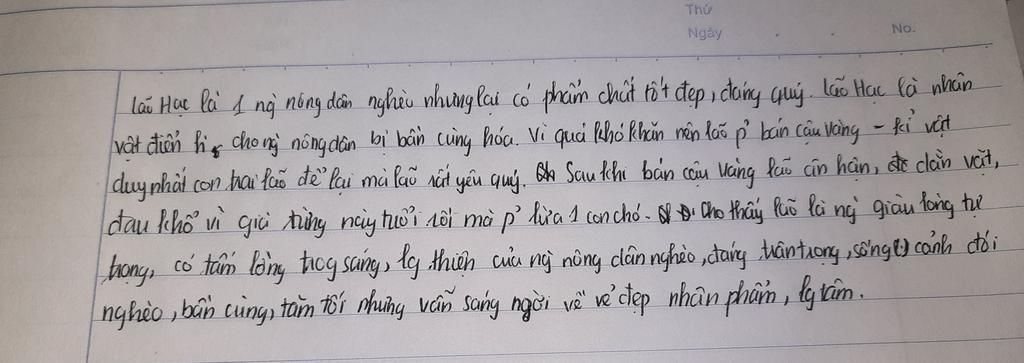 Thứ
Ngày
No.
Lão Hạc là 1 ng nông dân nghèo nhưng lại có phẩm chất tốt đẹp, đáng quý. Lão Hạc là nhân
vật điển h cho ng nông dân bị bần cùng hóa. Vì quá khó khăn nên lão p' bán cậu vàng - kỉ vật
duy nhất con trai lão để lại mà lão rất yêu quý. Sau khi bán cậu vàng lão ăn hận, dằn vặt,
đau khổ vì già từng này tuổi rồi mà p' lừa 1 con chó. Cho thấy lão là ng giàu lòng tự
trọng, có tấm lòng trog sáng, lg thiện của ng nông dân nghèo, đáng trân trọng, sống (t) cảnh đói
nghèo, bần cùng, tăm tối nhưng vẫn sáng ngời về vẻ đẹp nhân phẩm, lg tâm.